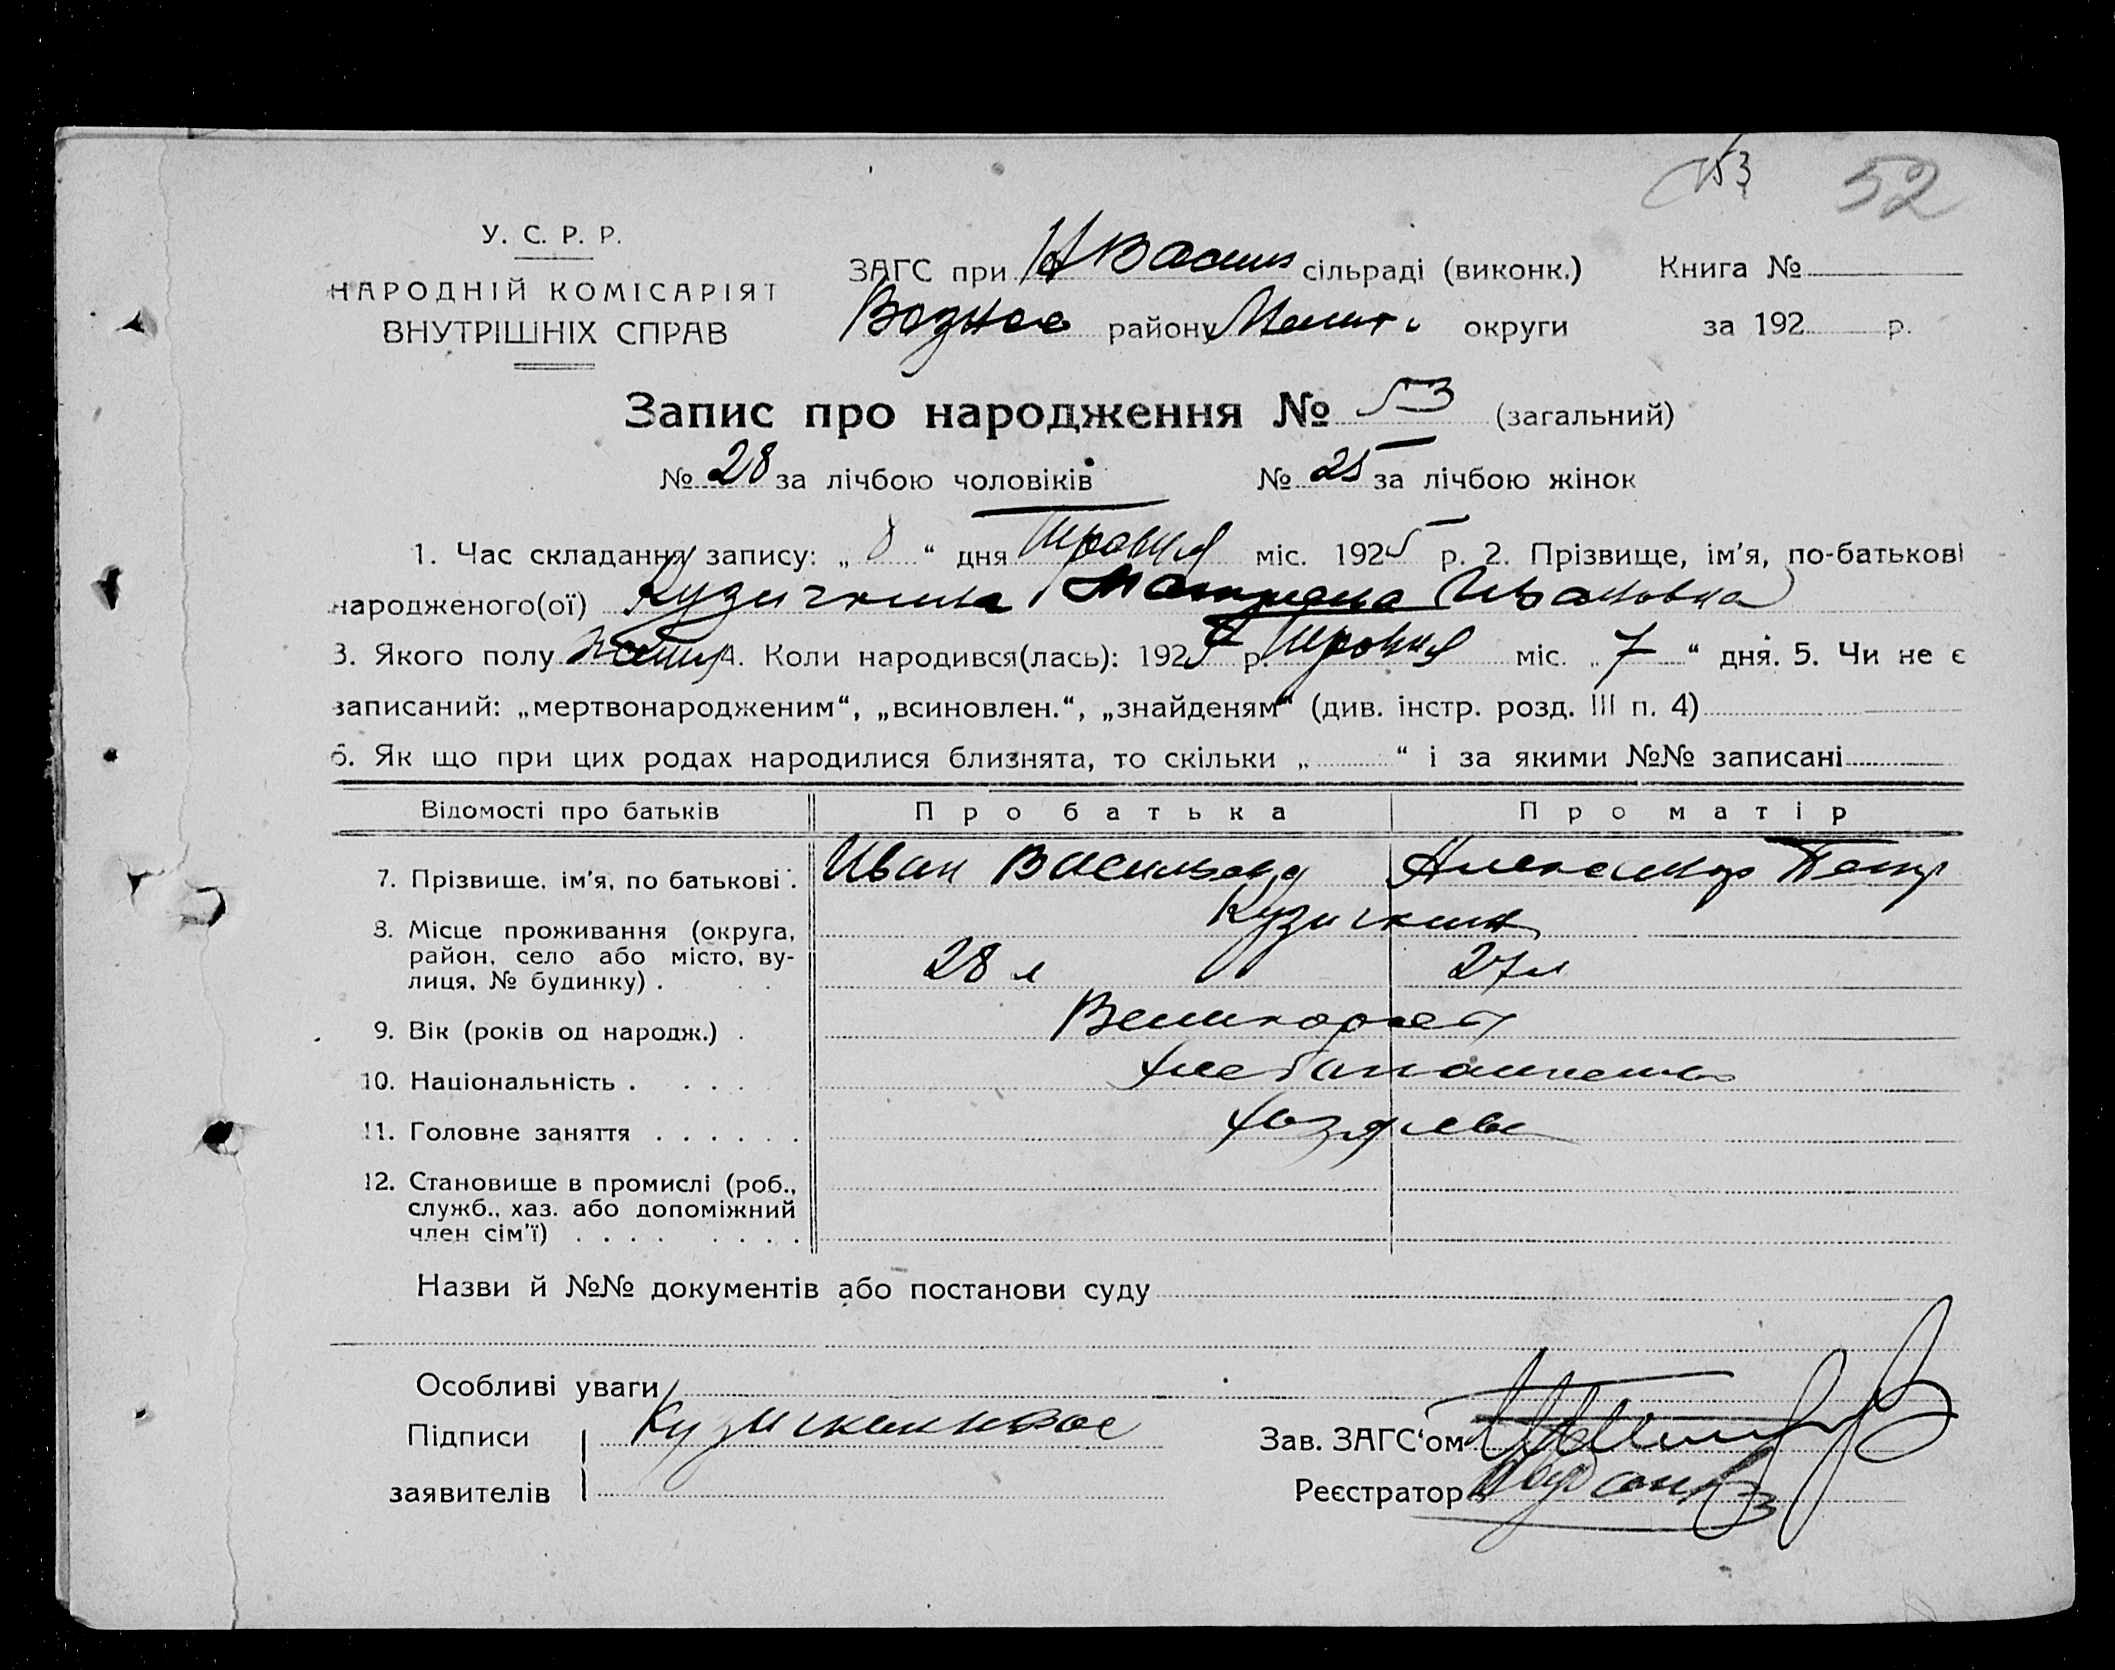 53 52
У. С. Р. Р.
НАРОДНІЙ КОМІСАРІЯТ
ВНУТРІШНІХ СПРАВ
ЗАГС при Н Васил сільраді (виконк.) Книга №
Вознес району Мелит. округи за 192 р.
Запис про народження № 53 (загальний)
№ 28 за лічбою чоловіків № 25 за лічбою жінок
1. Час складання запису: „ 8 “ дня Травня міс. 1925 р. 2. Прізвище, ім’я, по-батькові
народженого(ої) Кузичкина Матрена Ивановна
3. Якого полу 4. Коли народився(лась): 1925 р. Травня міс. „ 7 “ дня. 5. Чи не є
записаний: „мертвонародженим“, „всиновлен.“, „знайденям“ (див. інстр. розд. III п. 4)
6. Як що при цих родах народилися близнята, то скільки „ “ і за якими №№ записані
Відомості про батьків Про батька Про матір
7. Прізвище, ім’я, по батькові . Иван Васильевич Александр Петр
Кузичкин
8. Місце проживання (округа,
район, село або місто, ву-
лиця, № будинку) . 28 л 27 л
9. Вік (років од народж.) . Великорос
10. Національність . . . . Хлебопашество
11. Головне заняття . . . . . . Хозяева
12. Становище в промислі (роб.,
служб., хаз. або допоміжний
член сім’ї) . . . . . . . .
Назви й №№ документів або постанови суду
Особливі уваги
Підписи Кузичкин
заявителів
Зав. ЗАГС‘ом
Реєстратор